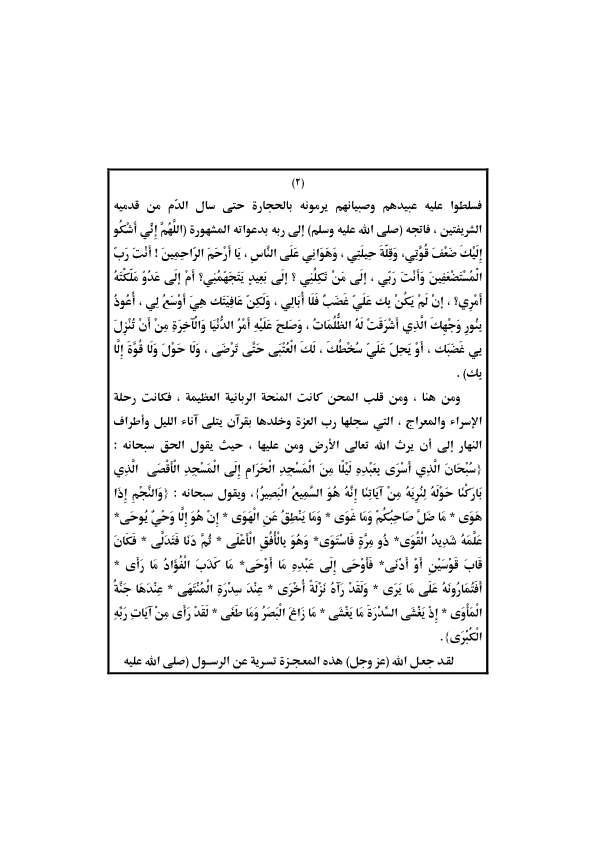 (٢)
فسلطوا عليه عبيدهم وصبيانهم يرمونه بالحجارة حتى سال الدّم من قدميه
الشريفتين ، فاتجه (صلى الله عليه وسلم) إلى ربه بدعواته المشهورة (اللَّهُمَّ إِنِّي أَشْكُو
إِلَيْكَ ضَعْفَ قُوَّتِي، وَقِلَّةَ حِيلَتِي ، وَهَوَانِي عَلَى النَّاسِ ، يَا أَرْحَمَ الرَّاحِمِينَ ! أَنْتَ رَبّ
الْمُسْتَضْعَفِينَ وَأَنْتَ رَبِّي ، إلَى مَنْ تَكِلُنِي ؟ إلَى بَعِيدٍ يَتَجَهّمُنِي؟ أَمْ إلَى عَدُوّ مَلّكْتَهُ
أَمْرِي؟ ، إنْ لَمْ يَكُنْ بِك عَلَيّ غَضَبٌ فَلَا أُبَالِي ، وَلَكِنّ عَافِيَتَك هِيَ أَوْسَعُ لِي ، أَعُوذُ
بِنُورِ وَجْهِكَ الَّذِي أَشْرَقَتْ لَهُ الظُّلُمَاتُ ، وَصَلحَ عَلَيْهِ أَمْرُ الدُّنْيَا وَالْآخِرَةِ مِنْ أَنْ تُنْزِلَ
بِي غَضَبَك ، أَوْ يَحِلّ عَلَيّ سُخْطُكَ ، لَكَ الْعُتْبَى حَتَّى تَرْضَى ، وَلَا حَوْلَ وَلَا قُوَّةَ إِلَّا
بِك) .
ومن هنا ، ومن قلب المحن كانت المنحة الربانية العظيمة ، فكانت رحلة
الإسراء والمعراج ، التي سجلها رب العزة وخلدها بقرآن يتلى آناء الليل وأطراف
النهار إلى أن يرث الله تعالى الأرض ومن عليها ، حيث يقول الحق سبحانه :
{سُبْحَانَ الَّذِي أَسْرَى بِعَبْدِهِ لَيْلًا مِنَ الْمَسْجِدِ الْحَرَامِ إِلَى الْمَسْجِدِ الْأَقْصَى الَّذِي
بَارَكْنَا حَوْلَهُ لِنُرِيَهُ مِنْ آيَاتِنَا إِنَّهُ هُوَ السَّمِيعُ الْبَصِيرُ}، ويقول سبحانه : {وَالنَّجْمِ إِذَا
هَوَى * مَا ضَلَّ صَاحِبُكُمْ وَمَا غَوَى * وَمَا يَنْطِقُ عَنِ الْهَوَى * إِنْ هُوَ إِلَّا وَحْيٌ يُوحَى*
عَلَّمَهُ شَدِيدُ الْقُوَى* ذُو مِرَّةٍ فَاسْتَوَى* وَهُوَ بِالْأُفُقِ الْأَعْلَى * ثُمَّ دَنَا فَتَدَلَّى * فَكَانَ
قَابَ قَوْسَيْنِ أَوْ أَدْنَى* فَأَوْحَى إِلَى عَبْدِهِ مَا أَوْحَى* مَا كَذَبَ الْفُؤَادُ مَا رَأَى *
أَفَتُمَارُونَهُ عَلَى مَا يَرَى * وَلَقَدْ رَآهُ نَزْلَةً أُخْرَى * عِنْدَ سِدْرَةِ الْمُنْتَهَى * عِنْدَهَا جَنَّةُ
الْمَأْوَى * إِذْ يَغْشَى السِّدْرَةَ مَا يَغْشَى * مَا زَاغَ الْبَصَرُ وَمَا طَغَى * لَقَدْ رَأَى مِنْ آيَاتِ رَبِّهِ
الْكُبْرَى}.
لقد جعل الله (عز وجل) هذه المعجزة تسرية عن الرسول (صلى الله عليه